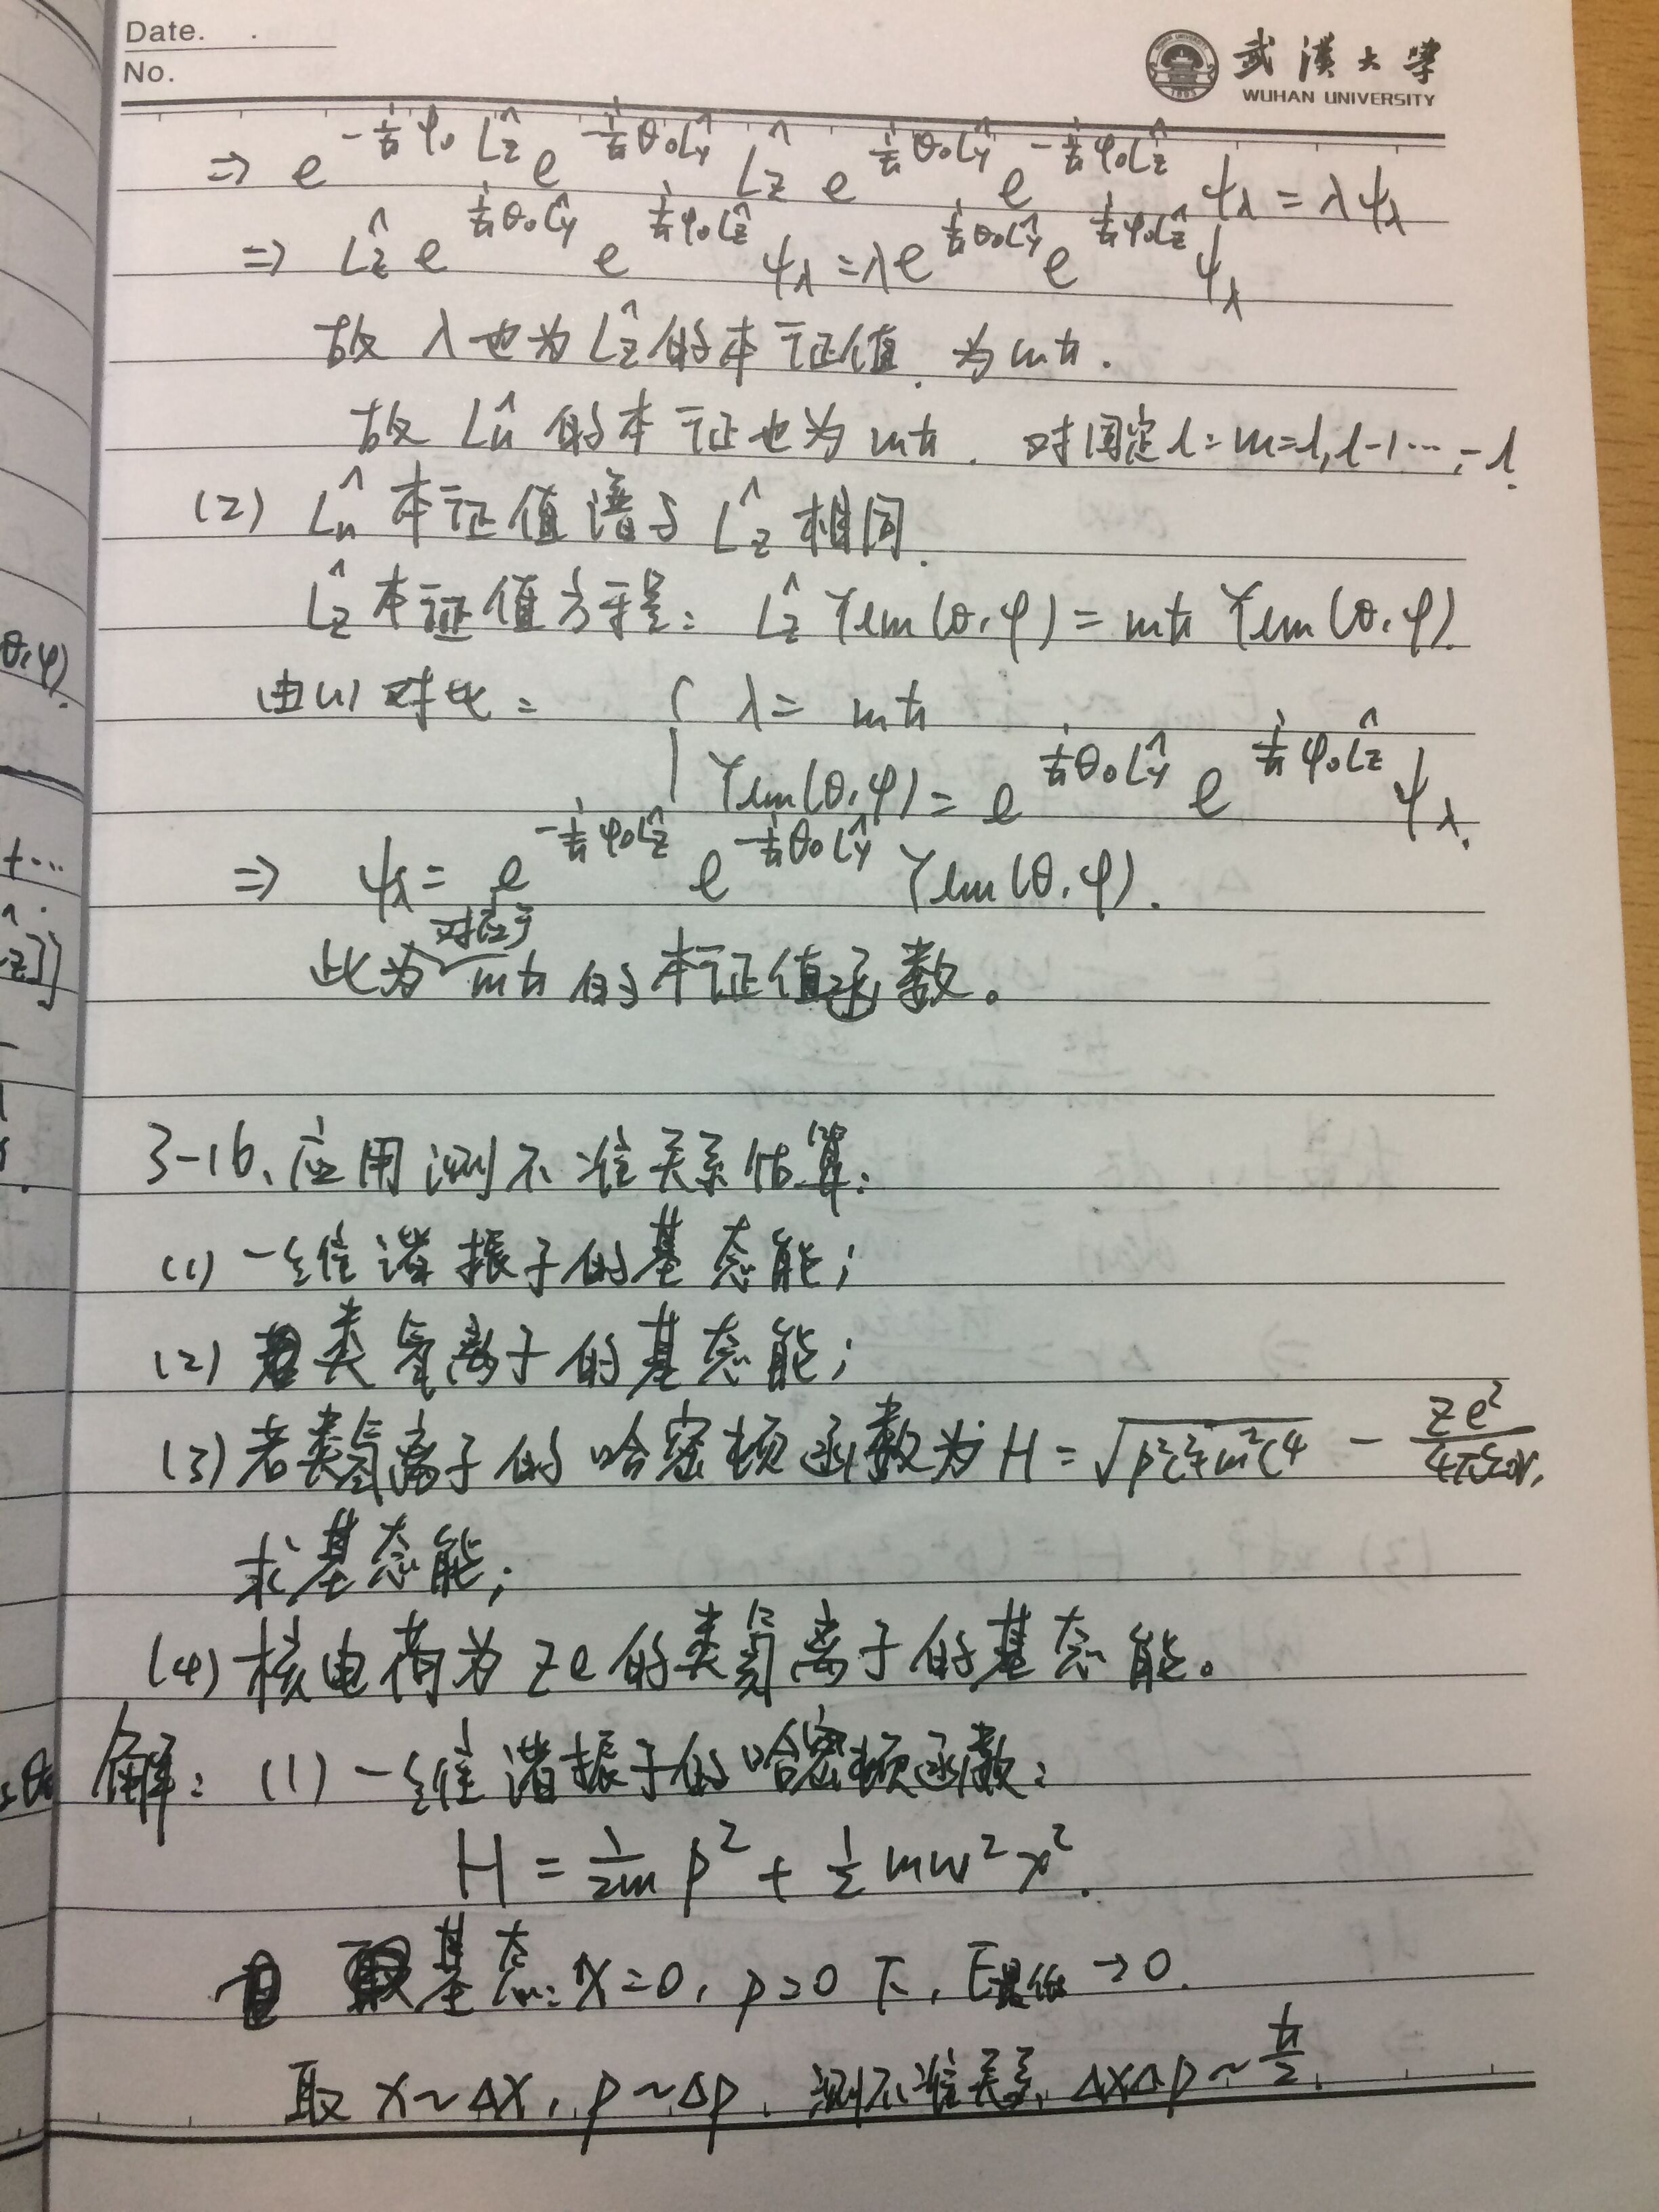 Date. .
No.
武漢大學
WUHAN UNIVERSITY
⇒ e^{-\frac{i}{ħ}φ₀\hat{L_z}} e^{-\frac{i}{ħ}θ₀\hat{L_y}} \hat{L_z} e^{\frac{i}{ħ}θ₀\hat{L_y}} e^{-\frac{i}{ħ}φ₀\hat{L_z}} ψ_λ = λψ_λ
⇒ \hat{L_z} e^{\frac{i}{ħ}θ₀\hat{L_y}} e^{\frac{i}{ħ}φ₀\hat{L_z}} ψ_λ = λ e^{\frac{i}{ħ}θ₀\hat{L_y}} e^{\frac{i}{ħ}φ₀\hat{L_z}} ψ_λ
故 λ也为 \hat{L_z} 的本证值. 为mħ.
故 \hat{L_n} 的本证也为 mħ. 对固定l: m=l, l-1…, -l.
(2) \hat{L_n} 本证值谱与 \hat{L_z} 相同.
\hat{L_z} 本证值方程: \hat{L_z} Y_{lm}(θ,φ) = mħ Y_{lm}(θ,φ).
由(1)对比: { λ = mħ
Y_{lm}(θ,φ) = e^{\frac{i}{ħ}θ₀\hat{L_y}} e^{\frac{i}{ħ}φ₀\hat{L_z}} ψ_λ.
⇒ ψ_λ = e^{-\frac{i}{ħ}φ₀\hat{L_z}} e^{-\frac{i}{ħ}θ₀\hat{L_y}} Y_{lm}(θ,φ).
此为对应于mħ的本证值函数。
3-16、应用测不准关系估算:
(1) 一维谐振子的基态能;
(2) 类氢离子的基态能;
(3) 若类氢离子的哈密顿函数为 H = \sqrt{p²c²+m²c⁴} - \frac{Ze²}{4πε₀r},
求基态能;
(4) 核电荷为Ze的类氢离子的基态能。
解: (1) 一维谐振子的哈密顿函数:
H = \frac{1}{2m} p² + \frac{1}{2} mw²x².
基态: X=0, p=0 下, E最低 → 0.
取 X~ΔX, p~Δp. 测不准关系, ΔXΔp ~ \frac{ħ}{2}.